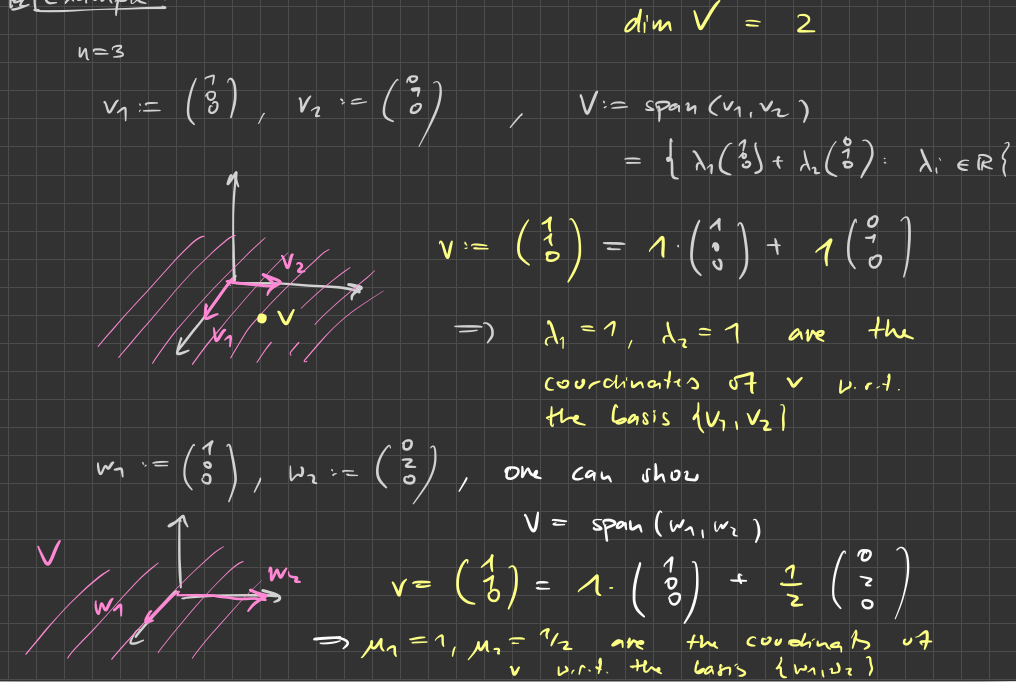 Example
dim V = 2
n=3
v₁ := (1 0 0), v₂ := (0 1 0), V := span(v₁, v₂)
= { λ₁(1 0 0) + λ₂(0 1 0) : λᵢ ∈ ℝ }
v := (1 1 0) = 1·(1 0 0) + 1(0 1 0)
v₂
v
v₁
⇒ λ₁ = 1, λ₂ = 1 are the
coordinates of v w.r.t.
the basis {v₁, v₂}
w₁ := (1 0 0), w₂ := (0 2 0), one can show
V = span(w₁, w₂)
V
w₂
w₁
v = (1 1 0) = 1·(1 0 0) + 1/2 (0 2 0)
⇒ μ₁ = 1, μ₂ = 1/2 are the coordinats of
v w.r.t. the basis {w₁, w₂}